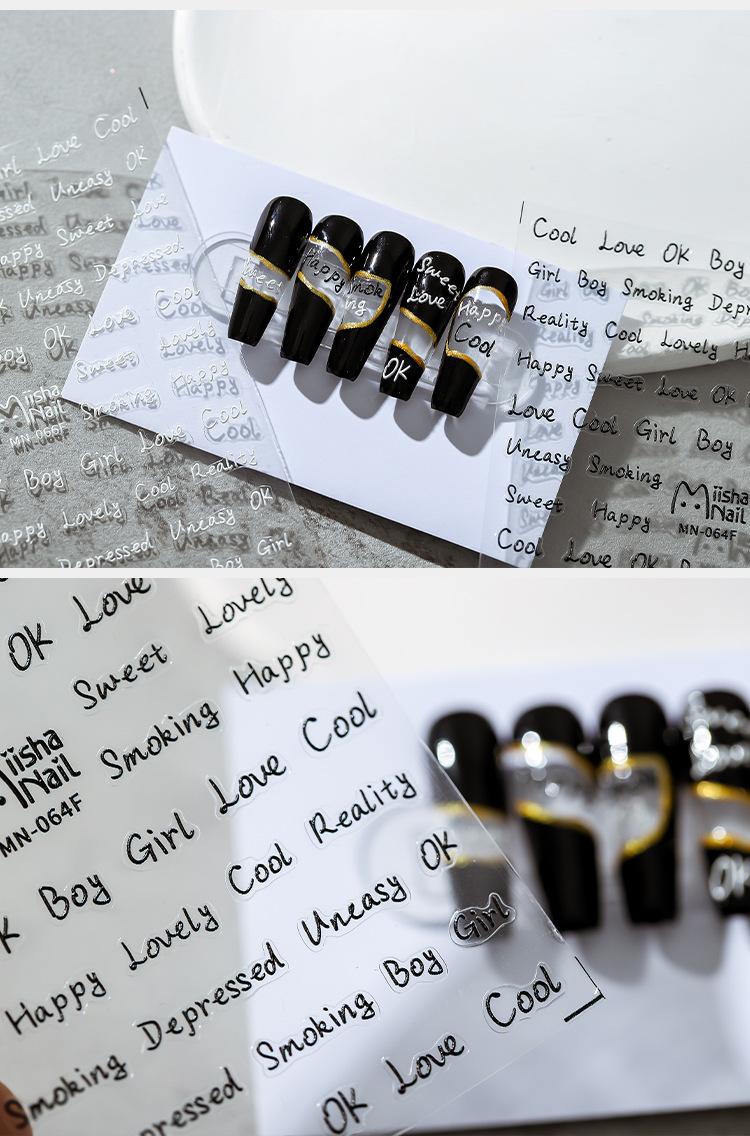 Love Cool
Uneasy OK
Sweet Love
Depressed
Uneasy
Cool
OK Love
Lovely
Sweet
Happy
Miisha
Nail
Smoking
MN-066F
Love Cool
OK Boy Girl
Reality
Lovely Cool
Uneasy OK
Happy
Depressed Boy Girl
Sweet
Happy
Smok
ing
Sweet
Love
OK
Happy
Cool
Cool Love OK Boy
Girl Boy Smoking
Reality Cool Lovely
Happy Sweet Love OK
Love Cool Girl Boy
Uneasy Smoking
Miisha
Nail
MN-064F
Sweet Happy
Cool Love OK
OK Love
Sweet Lovely
Miisha
Nail
MN-064F
Smoking Happy
Boy Girl Love Cool
Happy Lovely Cool Reality
Smoking Depressed Uneasy OK
Smoking Boy Girl
OK Love Cool
OK